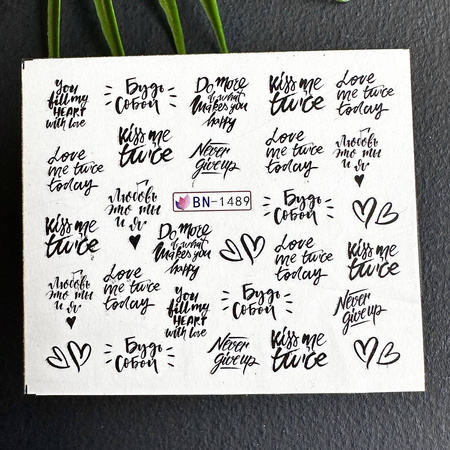 You
fill my
HEART
with love
Будь
Собой
Do More
of what
Makes you
happy
Kiss me
twice
Love
me twice
today
Love
me twice
today
Kiss me
twice
Never
give up
Love
me twice
today
Любовь
это ты
и я
Любовь
это ты
и я
BN-1489
Будь
Собой
Kiss me
twice
Do More
of what
Makes you
happy
Love
me twice
today
Kiss me
twice
Любовь
это ты
и я
Love
me twice
today
You
fill my
HEART
with love
Будь
Собой
Never
give up
Будь
Собой
Never
give up
Kiss me
twice